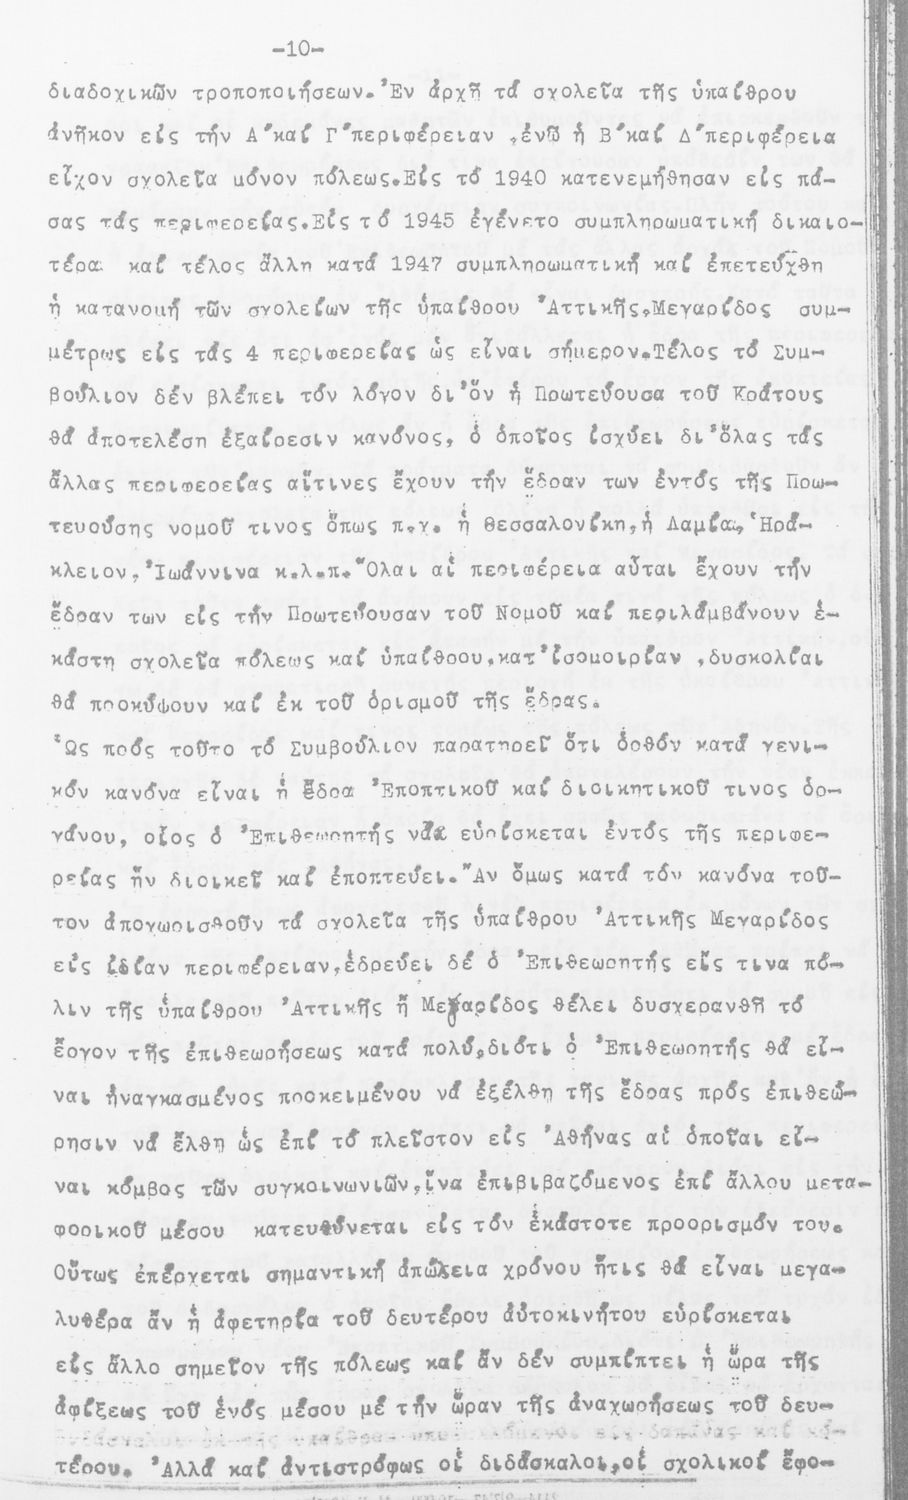 -10-
διαδοχικῶν τροποποιήσεων.Ἐν ἀρχῇ τά σχολεῖα τῆς ὑπαίθρου
ἀνῆκον εἰς τήν Α΄καί Γ΄περιφέρειαν ,ἐνῶ ἡ Β΄καί Δ΄περιφέρεια
εἶχον σχολεῖα μόνον πόλεως.Εἰς τό 1940 κατενεμήθησαν εἰς πά-
σας τάς περιφερείας.Εἰς τό 1945 ἐγένετο συμπληρωματική δικαιο-
τέρα καί τέλος ἄλλη κατά 1947 συμπληρωματική καί ἐπετεύχθη
ἡ κατανομή τῶν σχολείων τῆς ὑπαίθρου Ἀττικῆς,Μεγαρίδος συμ-
μέτρως εἰς τάς 4 περιφερείας ὡς εἶναι σήμερον.Τέλος τό Συμ-
βούλιον δέν βλέπει τόν λόγον δι᾽ὅν ἡ Πρωτεύουσα τοῦ Κράτους
θά ἀποτελέση ἐξαίρεσιν κανόνος, ὁ ὁποῖος ἰσχύει δι᾽ὅλας τάς
ἄλλας περιφερείας αἵτινες ἔχουν τήν ἕδραν των ἐντός τῆς Πρω-
τευούσης νομοῦ τινος ὅπως π.χ. ἡ Θεσσαλονίκη,ἡ Λαμία, Ἡρά-
κλειον,Ἰωάννινα κ.λ.π.Ὅλαι αἱ περιφέρεια αὗται ἔχουν τήν
ἕδραν των εἰς τήν Πρωτεύουσαν τοῦ Νομοῦ καί περιλαμβάνουν ἑ-
κάστη σχολεῖα πόλεως καί ὑπαίθρου,κατ᾽ἰσομοιρίαν ,δυσκολίαι
θά προκύψουν καί ἐκ τοῦ ὁρισμοῦ τῆς ἕδρας.
Ὡς πρός τοῦτο τό Συμβούλιον παρατηρεῖ ὅτι ὀρθόν κατά γενι-
κόν κανόνα εἶναι ἡ ἕδρα Ἐποπτικοῦ καί διοικητικοῦ τινος ὀρ-
γάνου, οἷος ὁ Ἐπιθεωρητής νά εὑρίσκεται ἐντός τῆς περιφε-
ρείας ἥν διοικεῖ καί ἐποπτεύει.Ἄν ὅμως κατά τόν κανόνα τοῦ-
τον ἀποχωρισθοῦν τά σχολεῖα τῆς ὑπαίθρου Ἀττικῆς Μεγαρίδος
εἰς ἰδίαν περιφέρειαν,ἑδρεύει δέ ὁ Ἐπιθεωρητής εἴς τινα πό-
λιν τῆς ὑπαίθρου Ἀττικῆς ἤ Μεγαρίδος θέλει δυσχερανθῆ τό
ἔργον τῆς ἐπιθεωρήσεως κατά πολύ,διότι ὁ Ἐπιθεωρητής θά εἶ-
ναι ἠναγκασμένος προκειμένου νά ἐξέλθη τῆς ἕδρας πρός ἐπιθεώ-
ρησιν νά ἔλθη ὡς ἐπί τό πλεῖστον εἰς Ἀθήνας αἱ ὁποῖαι εἶ-
ναι κόμβος τῶν συγκοινωνιῶν,ἵνα ἐπιβιβαζόμενος ἐπί ἄλλου μετα-
φορικοῦ μέσου κατευθύνεται εἰς τόν ἑκάστοτε προορισμόν του.
Οὕτως ἐπέρχεται σημαντική ἀπώλεια χρόνου ἥτις θά εἶναι μεγα-
λυθέρα ἄν ἡ ἀφετηρία τοῦ δευτέρου αὐτοκινήτου εὑρίσκεται
εἰς ἄλλο σημεῖον τῆς πόλεως καί ἄν δέν συμπίπτει ἡ ὥρα τῆς
ἀφίξεως τοῦ ἑνός μέσου μέ τήν ὥραν τῆς ἀναχωρήσεως τοῦ δευ-
τέρου. Ἀλλά καί ἀντιστρόφως οἱ διδάσκαλοι,οἱ σχολικοί ἔφο-